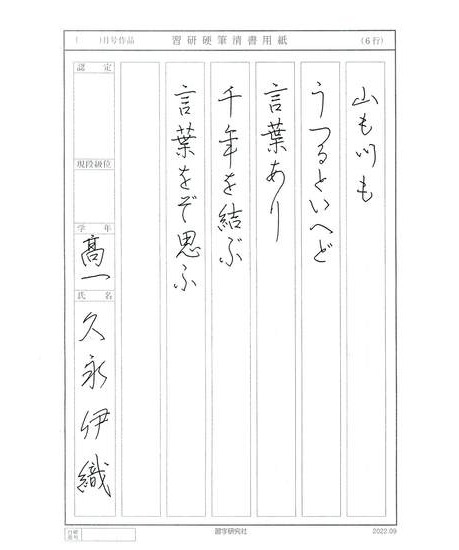 ( )月号作品 習研硬筆清書用紙 (6行)
山も川も
うつるといへど
言葉あり
千年を結ぶ
言葉をぞ思ふ
認定
現段級位
学年
高一
氏名
久永伊織
習字研究社
2022.09